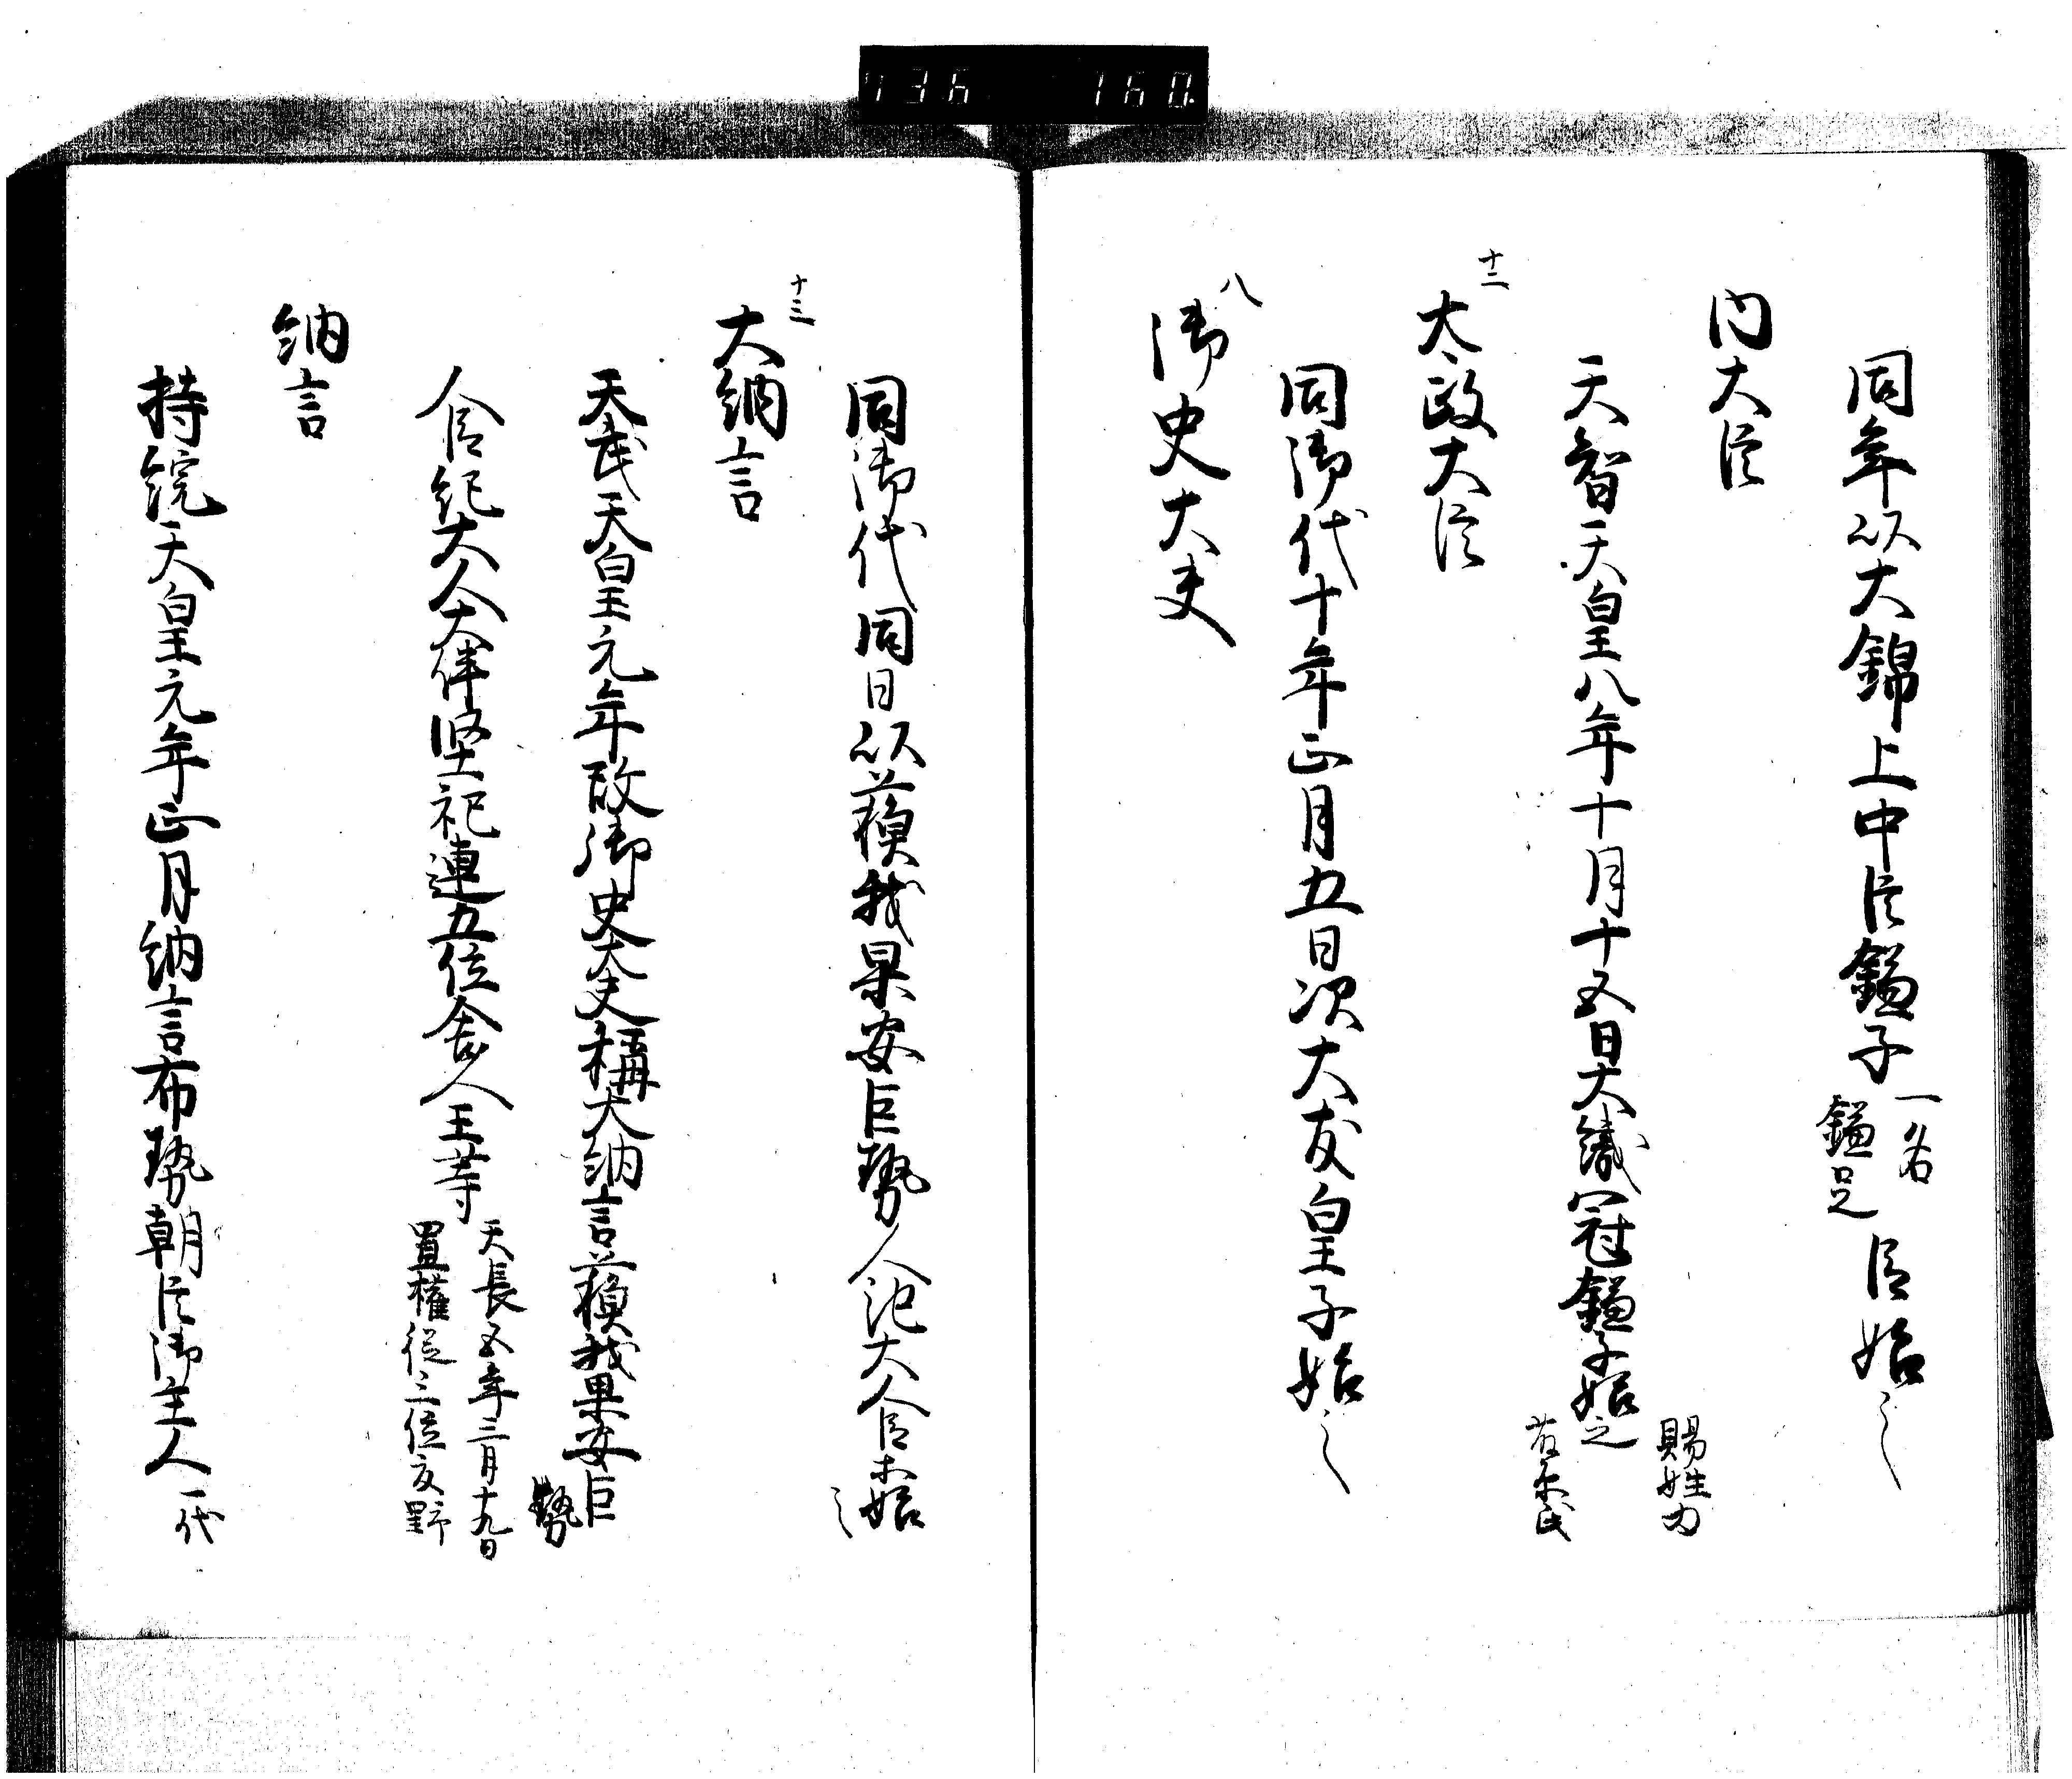 736 160
同年以大錦上中臣鎌子一名鎌足臣始之
内大臣
天智天皇八年十月十五日大織冠鎌子始之賜姓為藤原氏
十二
太政大臣
同御代十年正月五日次大友皇子始之
八
御史大夫
同御代同日以蘓我果安巨勢人紀大人臣等始之
十三
大納言
天武天皇元年改御史大夫稱大納言蘓我果安巨勢
人臣紀大人大伴堅祀連五位舎人王等天長五年三月十九日置権従三位良野
納言
持統天皇元年正月納言布勢朝臣御主人一代